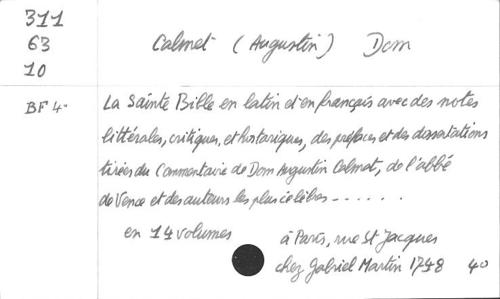 311
63
10
Calmet (Augustin) Dom
BF 4°
La Sainte Bible en latin et en français avec des notes
littérales, critiques, et historiques, des préfaces et des dissertations
tirées du Commentaire de Dom Augustin Calmet, de l'abbé
de Vence et des auteurs les plus célèbres ......
en 14 volumes
à Paris, rue St Jacques
chez Gabriel Martin 1748 40